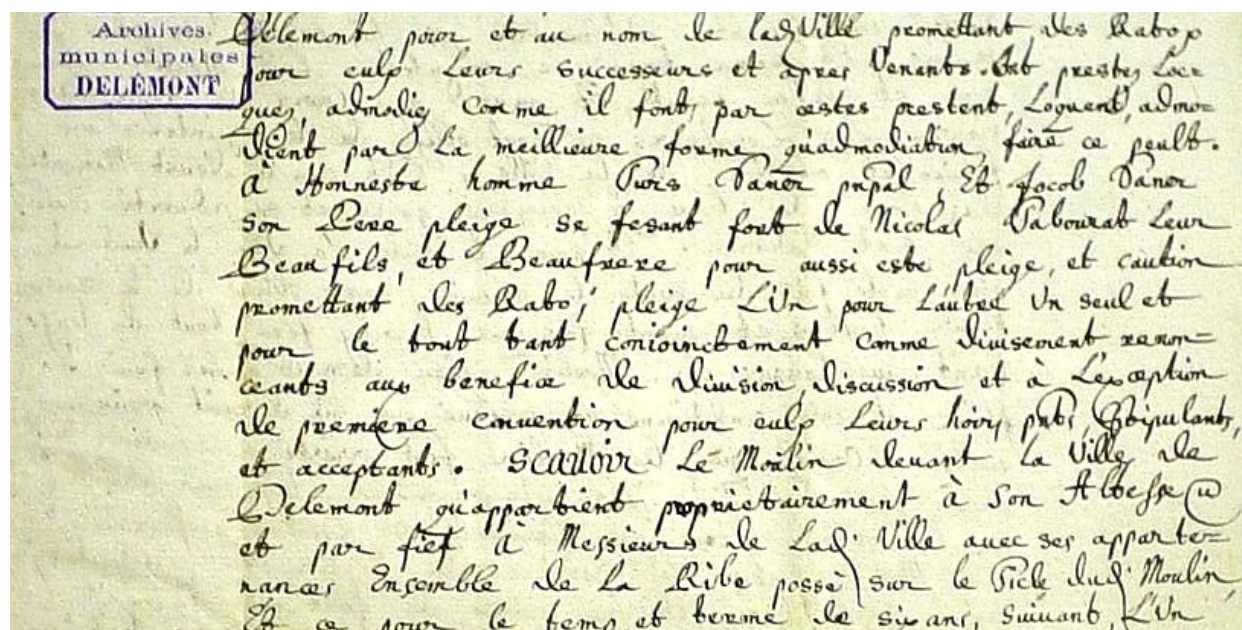 Archives
municipales
DELÉMONT
Delemont pour et au nom de lad Ville promettant des Rato
pour eulx Leurs successeurs et apres Venants. Ont prestez Loer
guez, admodiez Comme il font, par cestes prestent, Loquent, admo=
dient, par La meillieure forme qu'admodiation faire ce peult.
A Honneste homme Turs Daner pnpal, Et Jocob Daner
Son Pere pleige se fesant fort de Nicolas Tabourat Leur
Beaufils, et Beaufrere pour aussi este pleige, et caution
promettant des Rato, pleige L'Un pour Lautre Un seul et
pour le tout tant conioinctement comme divisement renon=
ceants aux benefice de division, discussion et à L'exception
de premiere convention pour eulx Leurs hoirs pnts, Stipulants,
et acceptants. SCAVOIR Le Moulin devant La Ville de
Delemont qu'appartient proprietairement à Son Altesse
et par fief à Messieurs de Lad Ville avec ses apparte=
nances Ensemble de La Ribe possé sur le dud Moulin
Et ce pour le temps et terme de six ans, suivant, L'Un